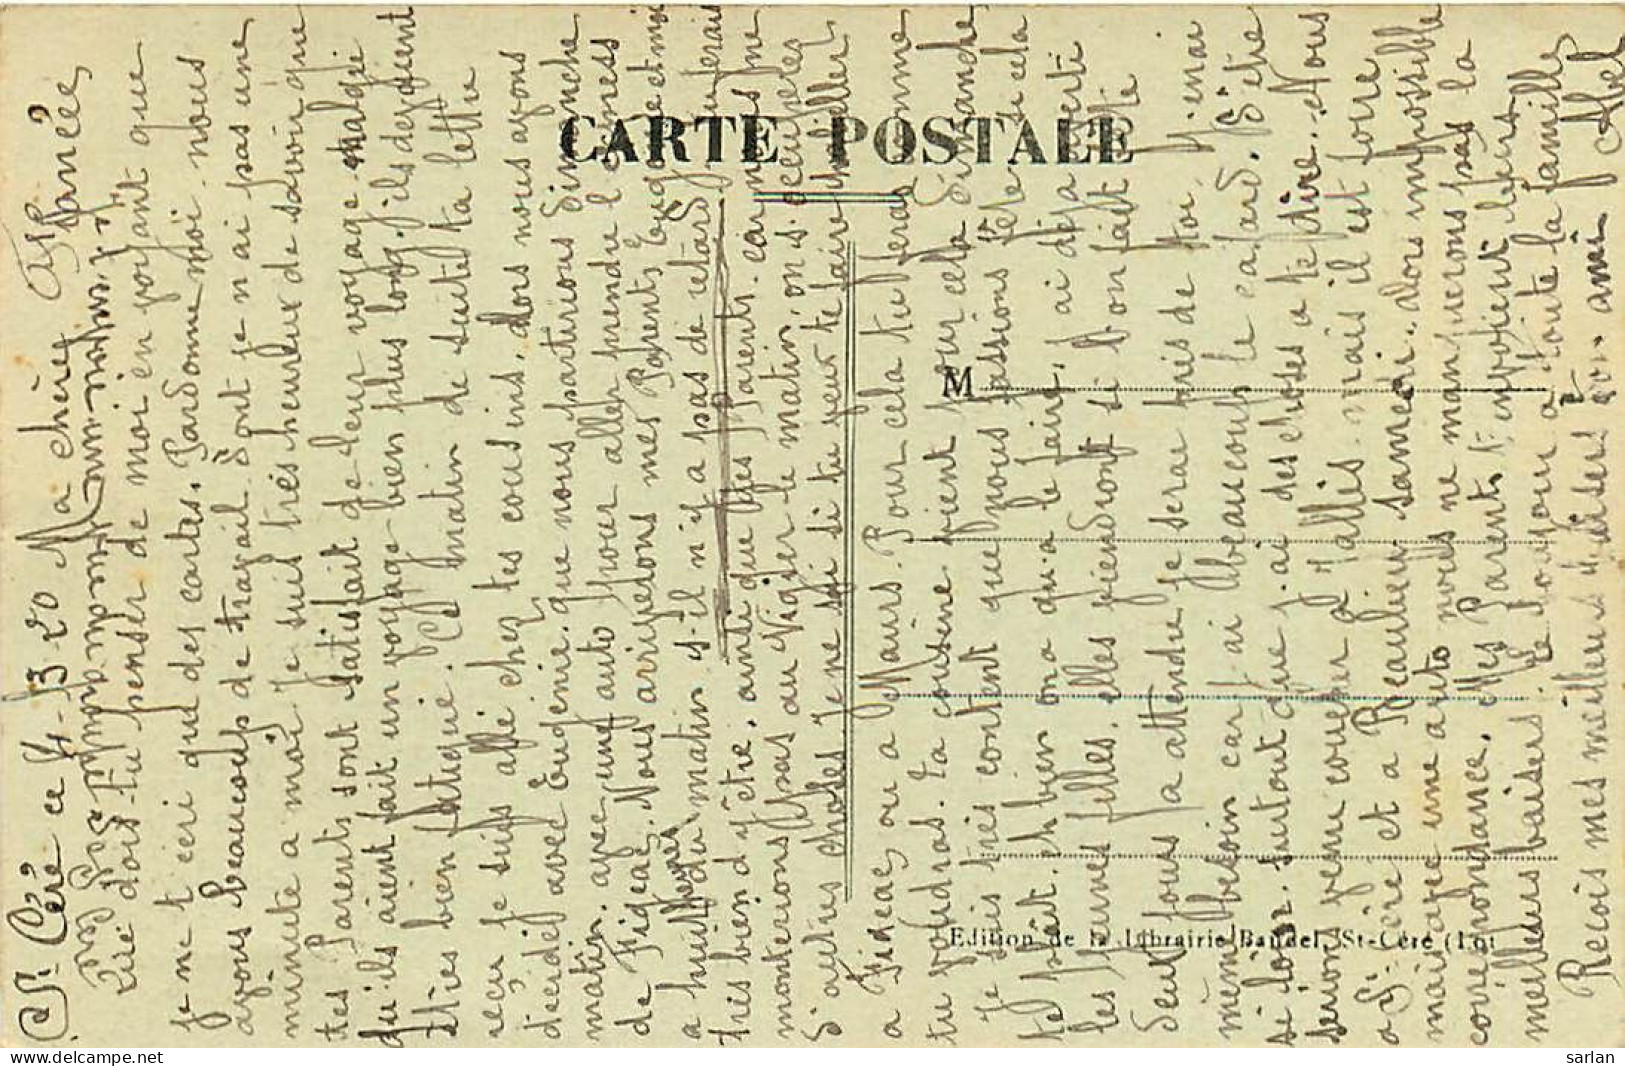 St Céré ce 4-3-20 Ma chère Aspancée
Que dois-tu penser de moi en voyant que
je ne t'ecri que des cartes. Pardonne moi. nous
avons beaucoup de travail. Dont je n'ai pas une
minute a moi Je suis très heureux de savoir que
tes Parents sont satisfait de leur voyage malgré
qu'ils aient fait un voyage bien plus long. ils devaient
êtres bien fatigué. Ce matin de suite ta lettre
reçu je suis allé chez tes cousins. Alors nous avons
décidé avec Eugénie. que nous partirions Dimanche
matin. avec une auto pour aller prendre l'express
de Figeac. Nous arriverons mes Parents Eugénie et moi
a huit heures du matin s'il n'y a pas de retard
très bien d'y être. ainsi que tes Parents. car mes
monterions pas au Vigier le matin, on s'occuperes
D'autres choses Je ne sai si tu veux te faire habiller
a Figeac ou a Maurs. Pour cela tu feras comme
tu voudras. Ta cousine vient pour cela Dimanche
Je suis très content que nous passions fête si cela
te plait. eh bien on a qu'a le faire, j'ai déja averti
les jeunes filles. elles viendront si l'on fait fête
Seul jours j'a attendre je serai près de toi, j'en ai
même besoin car j'ai beaucoup le cafard. D'être
si loin. surtout que j'ai des choses a te dire. Nous
serions venu coucher a mais il est foire
a St Céré et a Beaulieu samedi. Alors impossible
mais avec une auto nous ne manquerons pas la
correspondance. Mes Parents t'envoient leurs
meilleurs baisers. Le bonjour a toute la famille
Recois mes meilleurs baisers ton ami Abel
CARTE POSTALE
M
Edition de la Librairie Baudel, St-Céré (Lot
sarlan